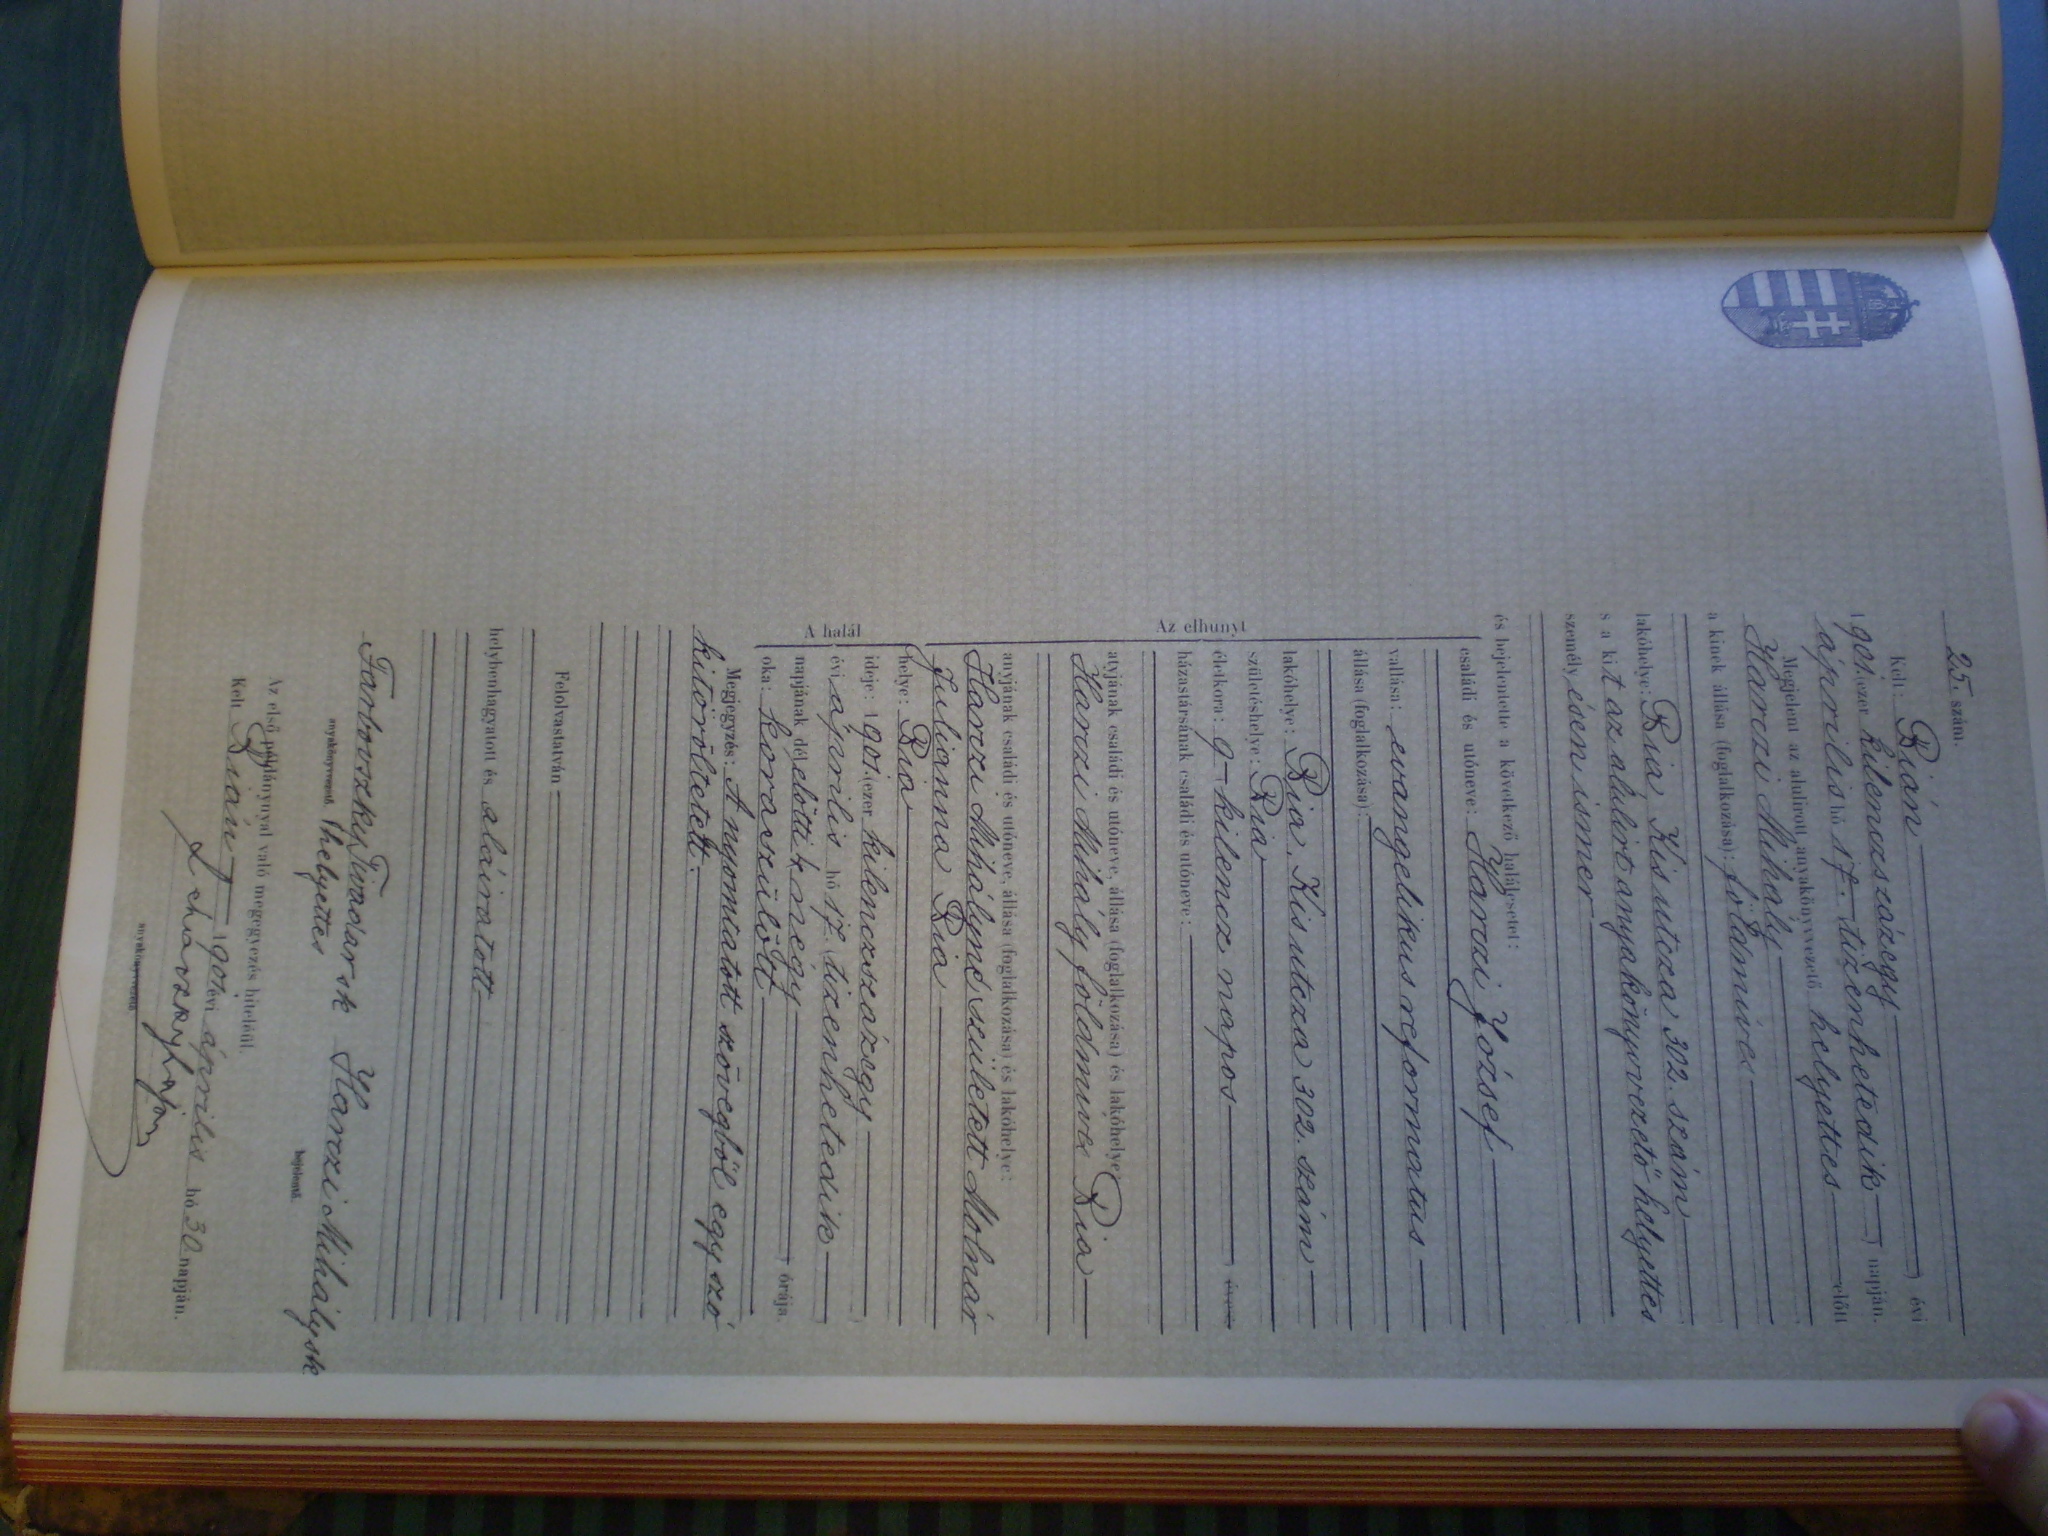 25. szám.
Kelt: Bián évi
1901. ezer kilenczszázegy
április hó 17. tizenhetedik napján.
Megjelent az alulirott anyakönyvvezető helyettes előtt
Harczi Mihály
a kinek állása (foglalkozása): földmíves
lakóhelye: Bia, Kis utcza 302. szám
s a kit az alulirt anyakönyvvezető helyettes
személyesen ismer
és bejelentette a következő halálesetet:
Az elhunyt
családi és utóneve: Harczi József
vallása: evangelikus reformatus
állása (foglalkozása):
lakóhelye: Bia, Kis utcza 302. szám
születéshelye: Bia
életkora: 9 – kilencz napos éves
házastársának családi és utóneve:
atyjának családi és utóneve, állása (foglalkozása) és lakóhelye:
Harczi Mihály földmíves Bia
anyjának családi és utóneve, állása (foglalkozása) és lakóhelye:
Harczi Mihályné született Molnár
Julianna Bia
A halál
helye: Bia
ideje: 1901. ezer kilenczszázegy
évi április hó 17. tizenhetedik
napjának dél előtti 4 négy órája.
oka: koraszülött
Megjegyzés: A nyomtatott szövegből egy szó
kitöröltetett.
Felolvastatván
helybenhagyatott és aláiratott
Tarboszky Tivadar sk Harczi Mihály sk
anyakönyvvezető helyettes bejelentő.
Az első példánynyal való megegyezés hiteléül.
Kelt Bián 1901 évi április hó 30 napján.
anyakönyvvezető